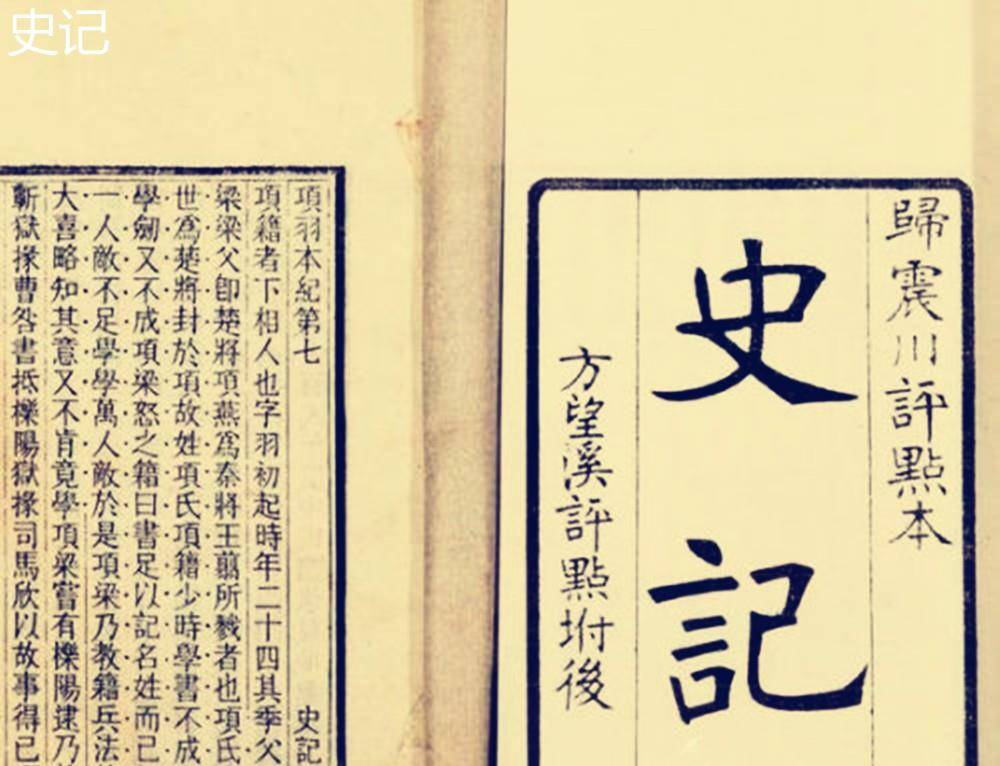 史记
歸震川評點本
史記
方望溪評點坿後
項羽本紀第七 史記
項籍者下相人也字羽初起時年二十四其季父
梁梁父卽楚將項燕爲秦將王翦所戮者也項氏
世爲楚將封於項故姓項氏項籍少時學書不成
學劒又不成項梁怒之籍曰書足以記名姓而已
一人敵不足學學萬人敵於是項梁乃教籍兵法
大喜略知其意又不肯竟學項梁嘗有櫟陽逮乃
蘄獄掾曹咎書抵櫟陽獄掾司馬欣以故事得已